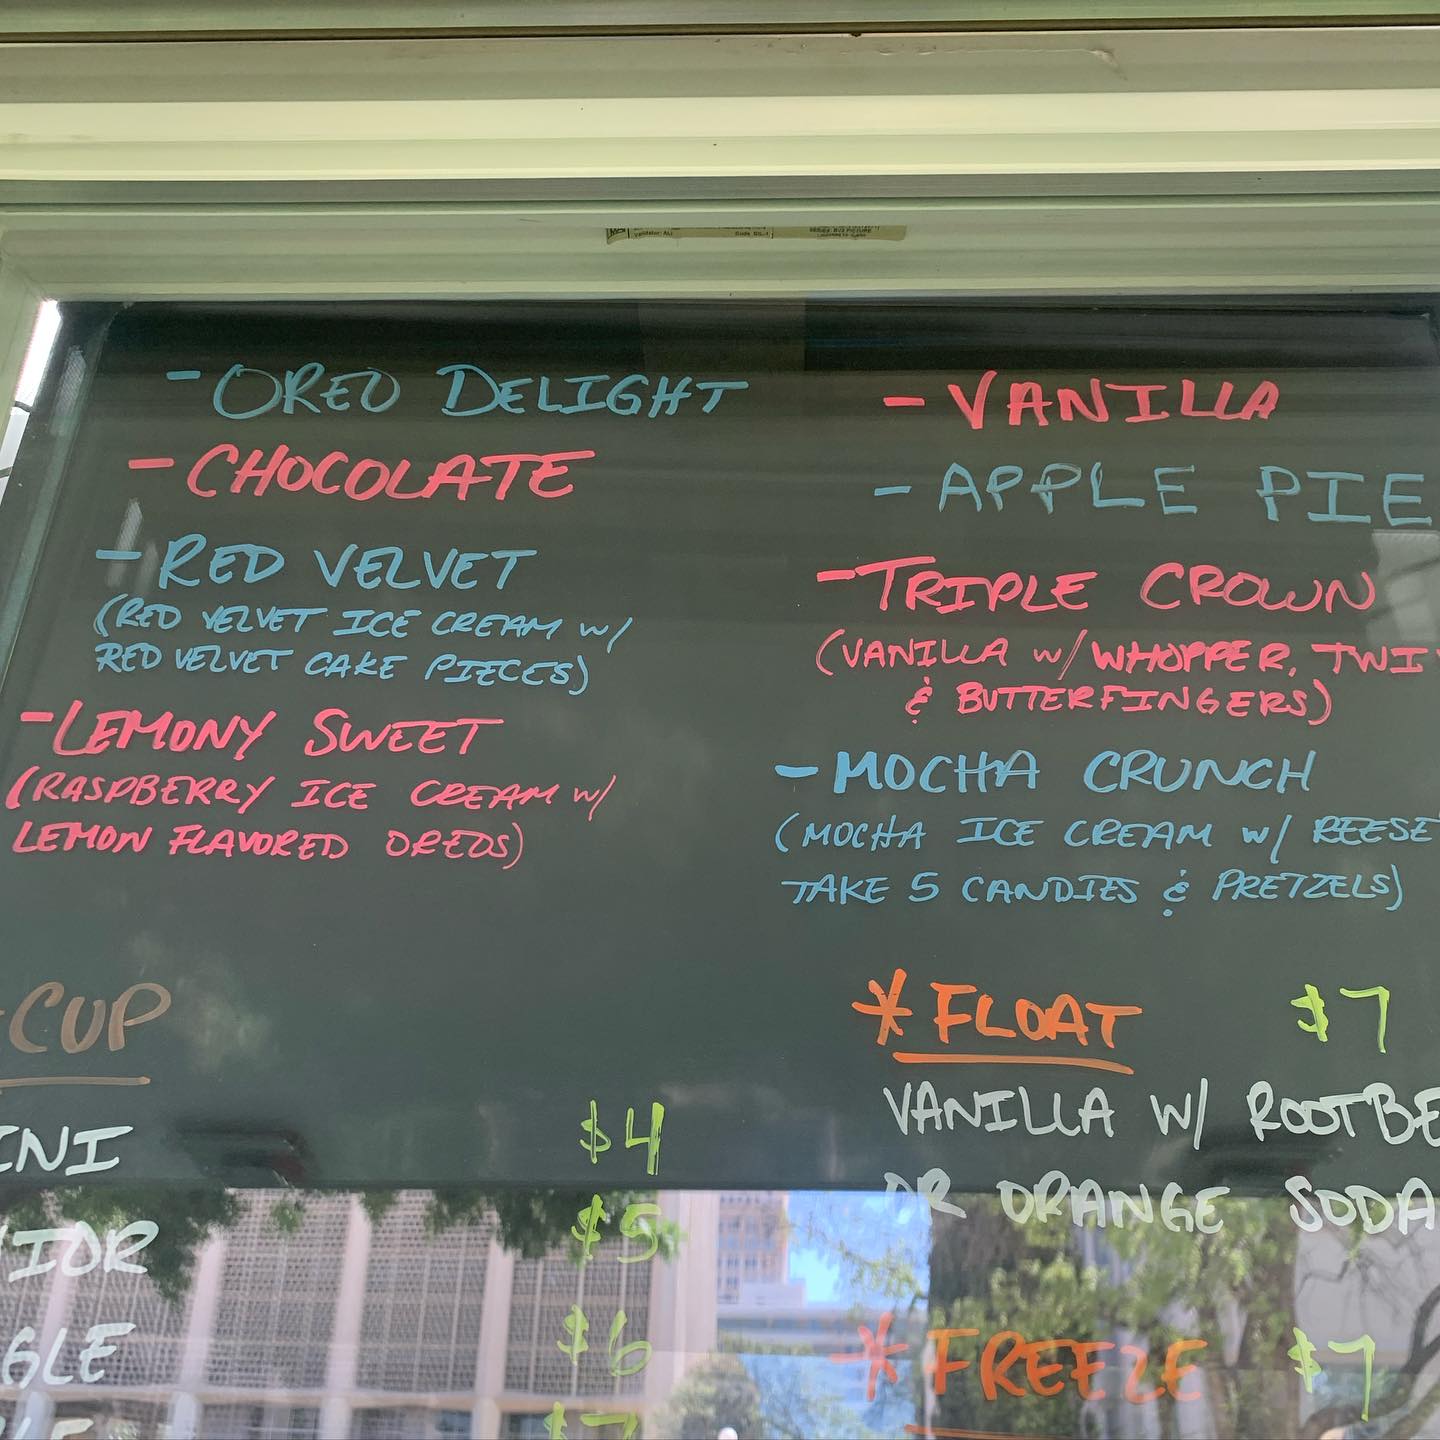 - OREO DELIGHT
- CHOCOLATE
- RED VELVET
(RED VELVET ICE CREAM W/
RED VELVET CAKE PIECES)
- LEMONY SWEET
(RASPBERRY ICE CREAM W/
LEMON FLAVORED OREOS)
- VANILLA
- APPLE PIE
- TRIPLE CROWN
(VANILLA W/ WHOPPER, TWI
& BUTTERFINGERS)
- MOCHA CRUNCH
(MOCHA ICE CREAM W/ REESE
TAKE 5 CANDIES & PRETZELS)
CUP
INI $4
IOR $5
GLE $6
$7
* FLOAT $7
VANILLA W/ ROOTBE
OR ORANGE SODA
* FREEZE $7